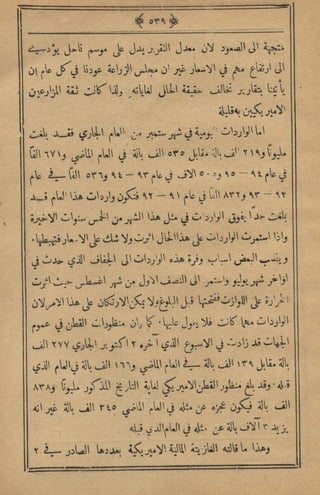 ﴿ ٥٣٩ ﴾
متجهة الى الصعود لان معدل التقرير يدل على موسم ناحل يؤدي
الى ارتفاع مهم في الاسعار غير ان مجلس الزراعة عودنا في كل عام ان
يأتينا بتقارير تخالف حقيقة الحال لغاياته ولذا كانت ثقة المزارعين
الاميركيين به قليلة
اما الواردات اليومية في شهر ستمبر من العام الجاري فقد بلغت
مليونا و٢١٩ الف بالة مقابل ٥٣٥ الف بالة في العام الماضي و٦٧١ الفا
في عام ٩٤ — ٩٥ و٥٠٠ الاف في عام ٩٣ — ٩٤ و٥٣٦ الفا في عام
٩٢ — ٩٣ و٨٣٢ الفا في عام ٩١ — ٩٢ فتكون واردات هذا العام قد
بلغت حدا يفوق الواردات في مثل هذا الشهر من الخمس سنوات الاخيرة
واذا استمرت الواردات على هذا الحال اثرت ولا شك على الاسعار فتهبطها.
وينسب البعض اسباب وفرة هذه الواردات الى الجفاف الذي حدث في
اواخر شهر يوليو واستمر الى النصف الاول من شهر اغسطس حيث اثرت
الحرارة على اللوازت ففتحتها قبل البلوغ ولا يمكن الارتكان على هذا الامر لان
الواردات مهما كانت فلا يعول عليها. كما ان منظورات القطن في عموم
الجهات قد زادت في الاسبوع الذي آخره ٢ اكتوبر الجاري ٢٧٧ الف
بالة مقابل ١٣٩ الف بالة في العام الماضي و١٦٦ الف بالة في العام الذي
قبله. وقد بلغ منظور القطن الاميركي لغاية التاريخ المذكور مليونا و٨٣٨
الف بالة فيكون عجزه عن مثله في العام الماضي ٣٤٥ الف بالة غير انه
يزيد آلاف بالة عن مثله في العام الذي قبله
وهذا ما قالته الغازيتة المالية الاميركية بعددها الصادر في ٢